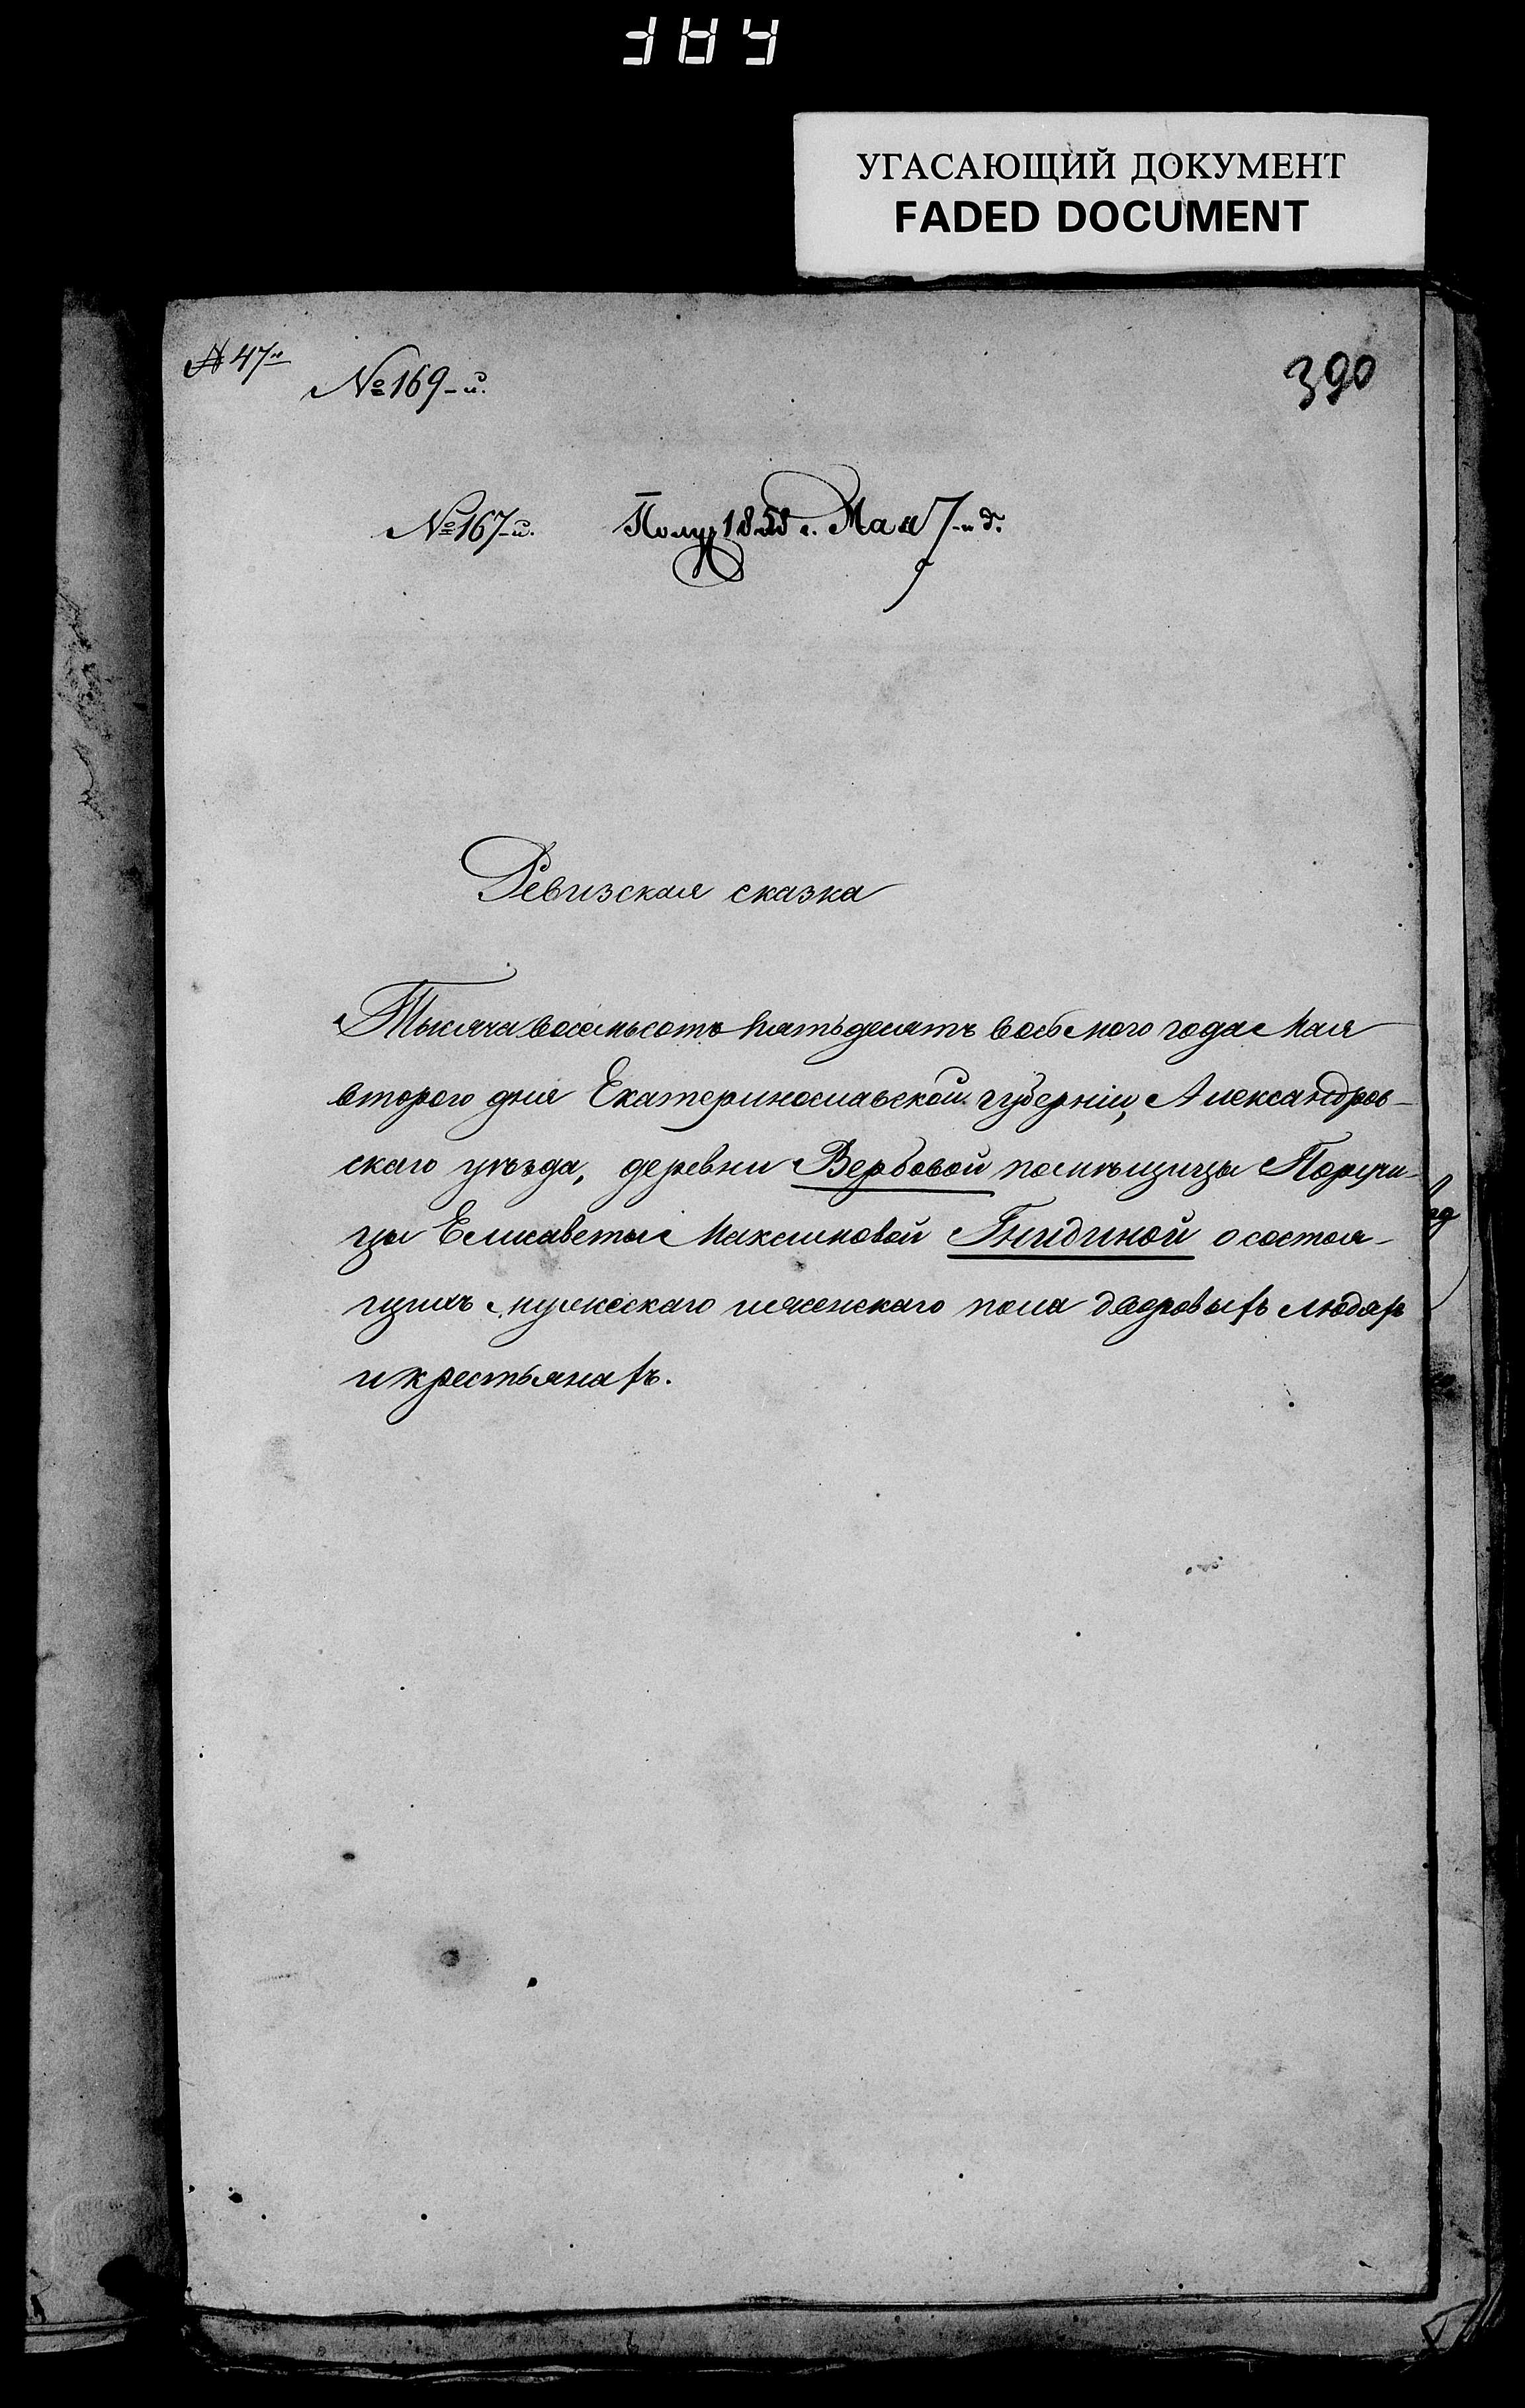 УГАСАЮЩИЙ ДОКУМЕНТ
FADED DOCUMENT
№ 47й
№ 169-й.
390
№ 167-й. Получ 1858 г. Мая 7-го д.
Ревизская сказка
Тысяча восемьсотъ пятьдесятъ восьмого года Мая
второго дня Екатеринославской губерніи, Александров-
скаго уѣзда, деревни Вербовой помѣщицы Поручи-
цы Елисаветы Максимовой Гнидиной о состоя-
щихъ мужескаго и женскаго пола дворовыхъ людяхъ
и крестьянахъ.